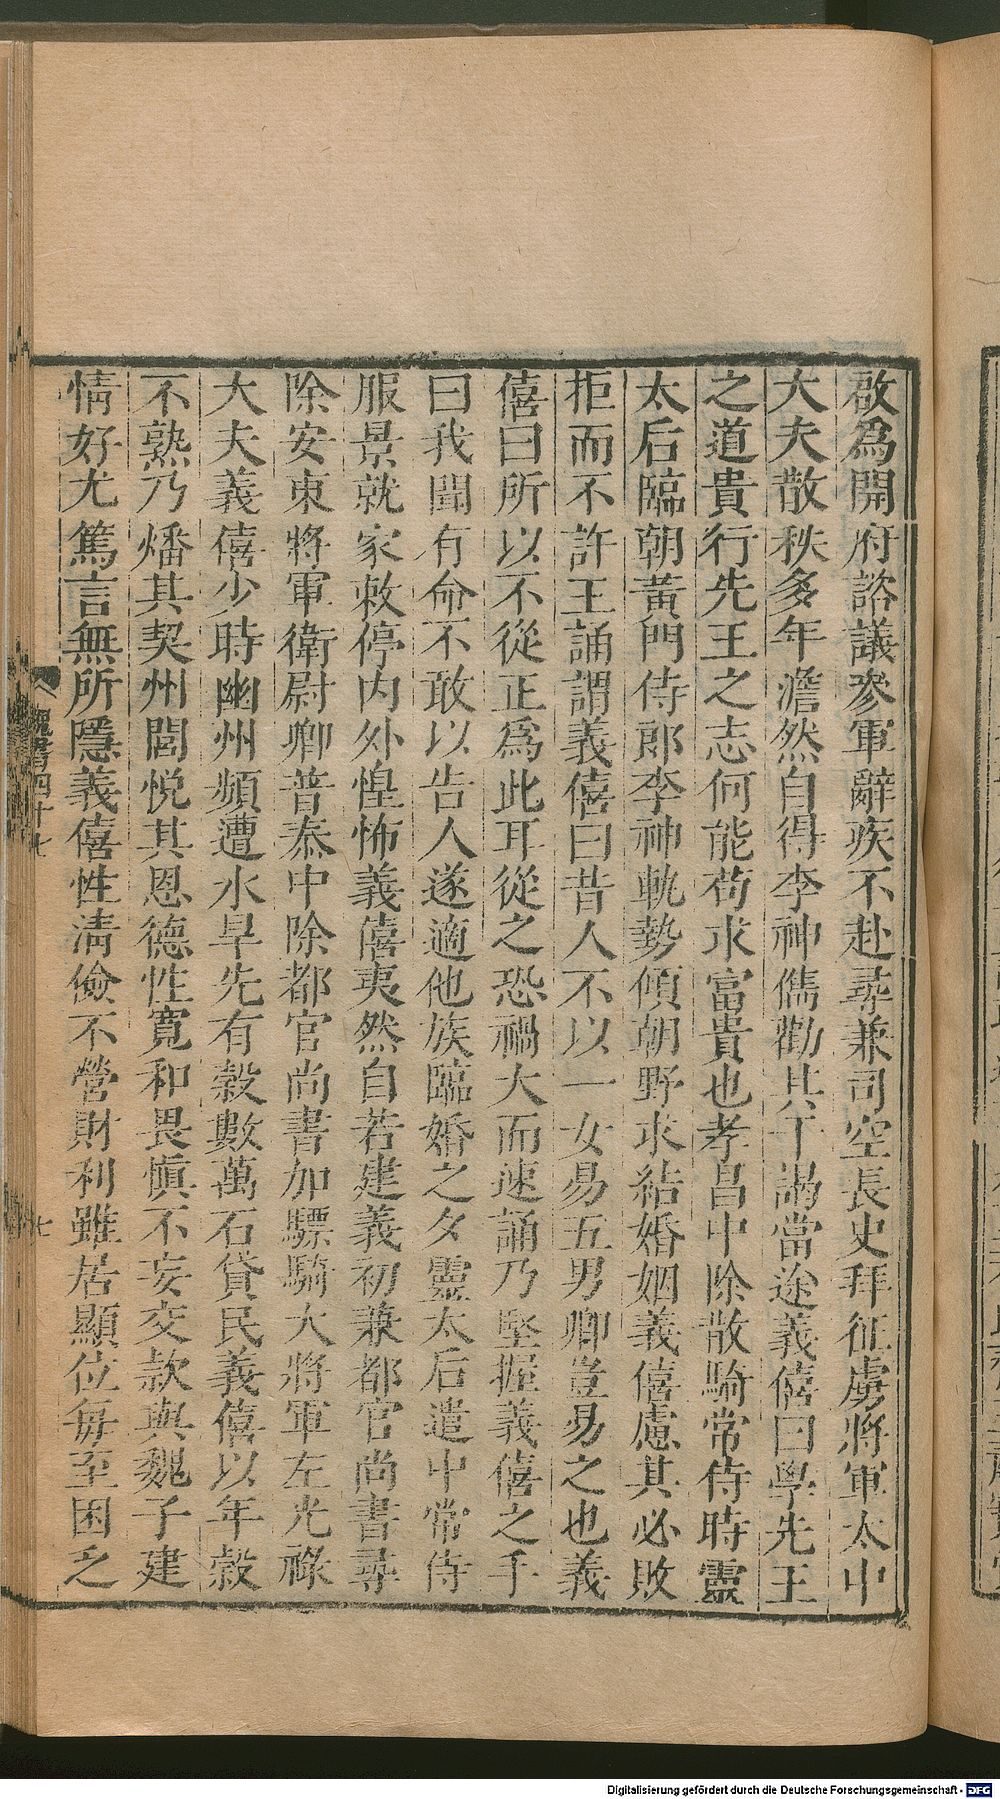 啟爲開府諮議參軍辭疾不赴尋兼司空長史拜征虜將軍太中
大夫散秩多年澹然自得李神儁勸其干謁當途義僖曰學先王
之道貴行先王之志何能苟求富貴也孝昌中除散騎常侍時靈
太后臨朝黃門侍郎李神軌勢傾朝野求結婚姻義僖慮其必敗
拒而不許王誦謂義僖曰昔人不以一女易五男卿豈易之也義
僖曰所以不從正爲此耳從之恐禍大而速誦乃堅握義僖之手
曰我聞有命不敢以告人遂適他族臨婚之夕靈太后遣中常侍
服景就家敕停内外惶怖義僖夷然自若建義初兼都官尚書尋
除安東將軍衛尉卿普泰中除都官尚書加驃騎大將軍左光祿
大夫義僖少時幽州頻遭水旱先有穀數萬石貸民義僖以年穀
不熟乃燔其契州閭悅其恩德性寬和畏愼不妄交款與魏子建
情好尤篤言無所隱義僖性淸儉不營財利雖居顯位每至困乏
魏書四十七
七
Digitalisierung gefördert durch die Deutsche Forschungsgemeinschaft - DFG